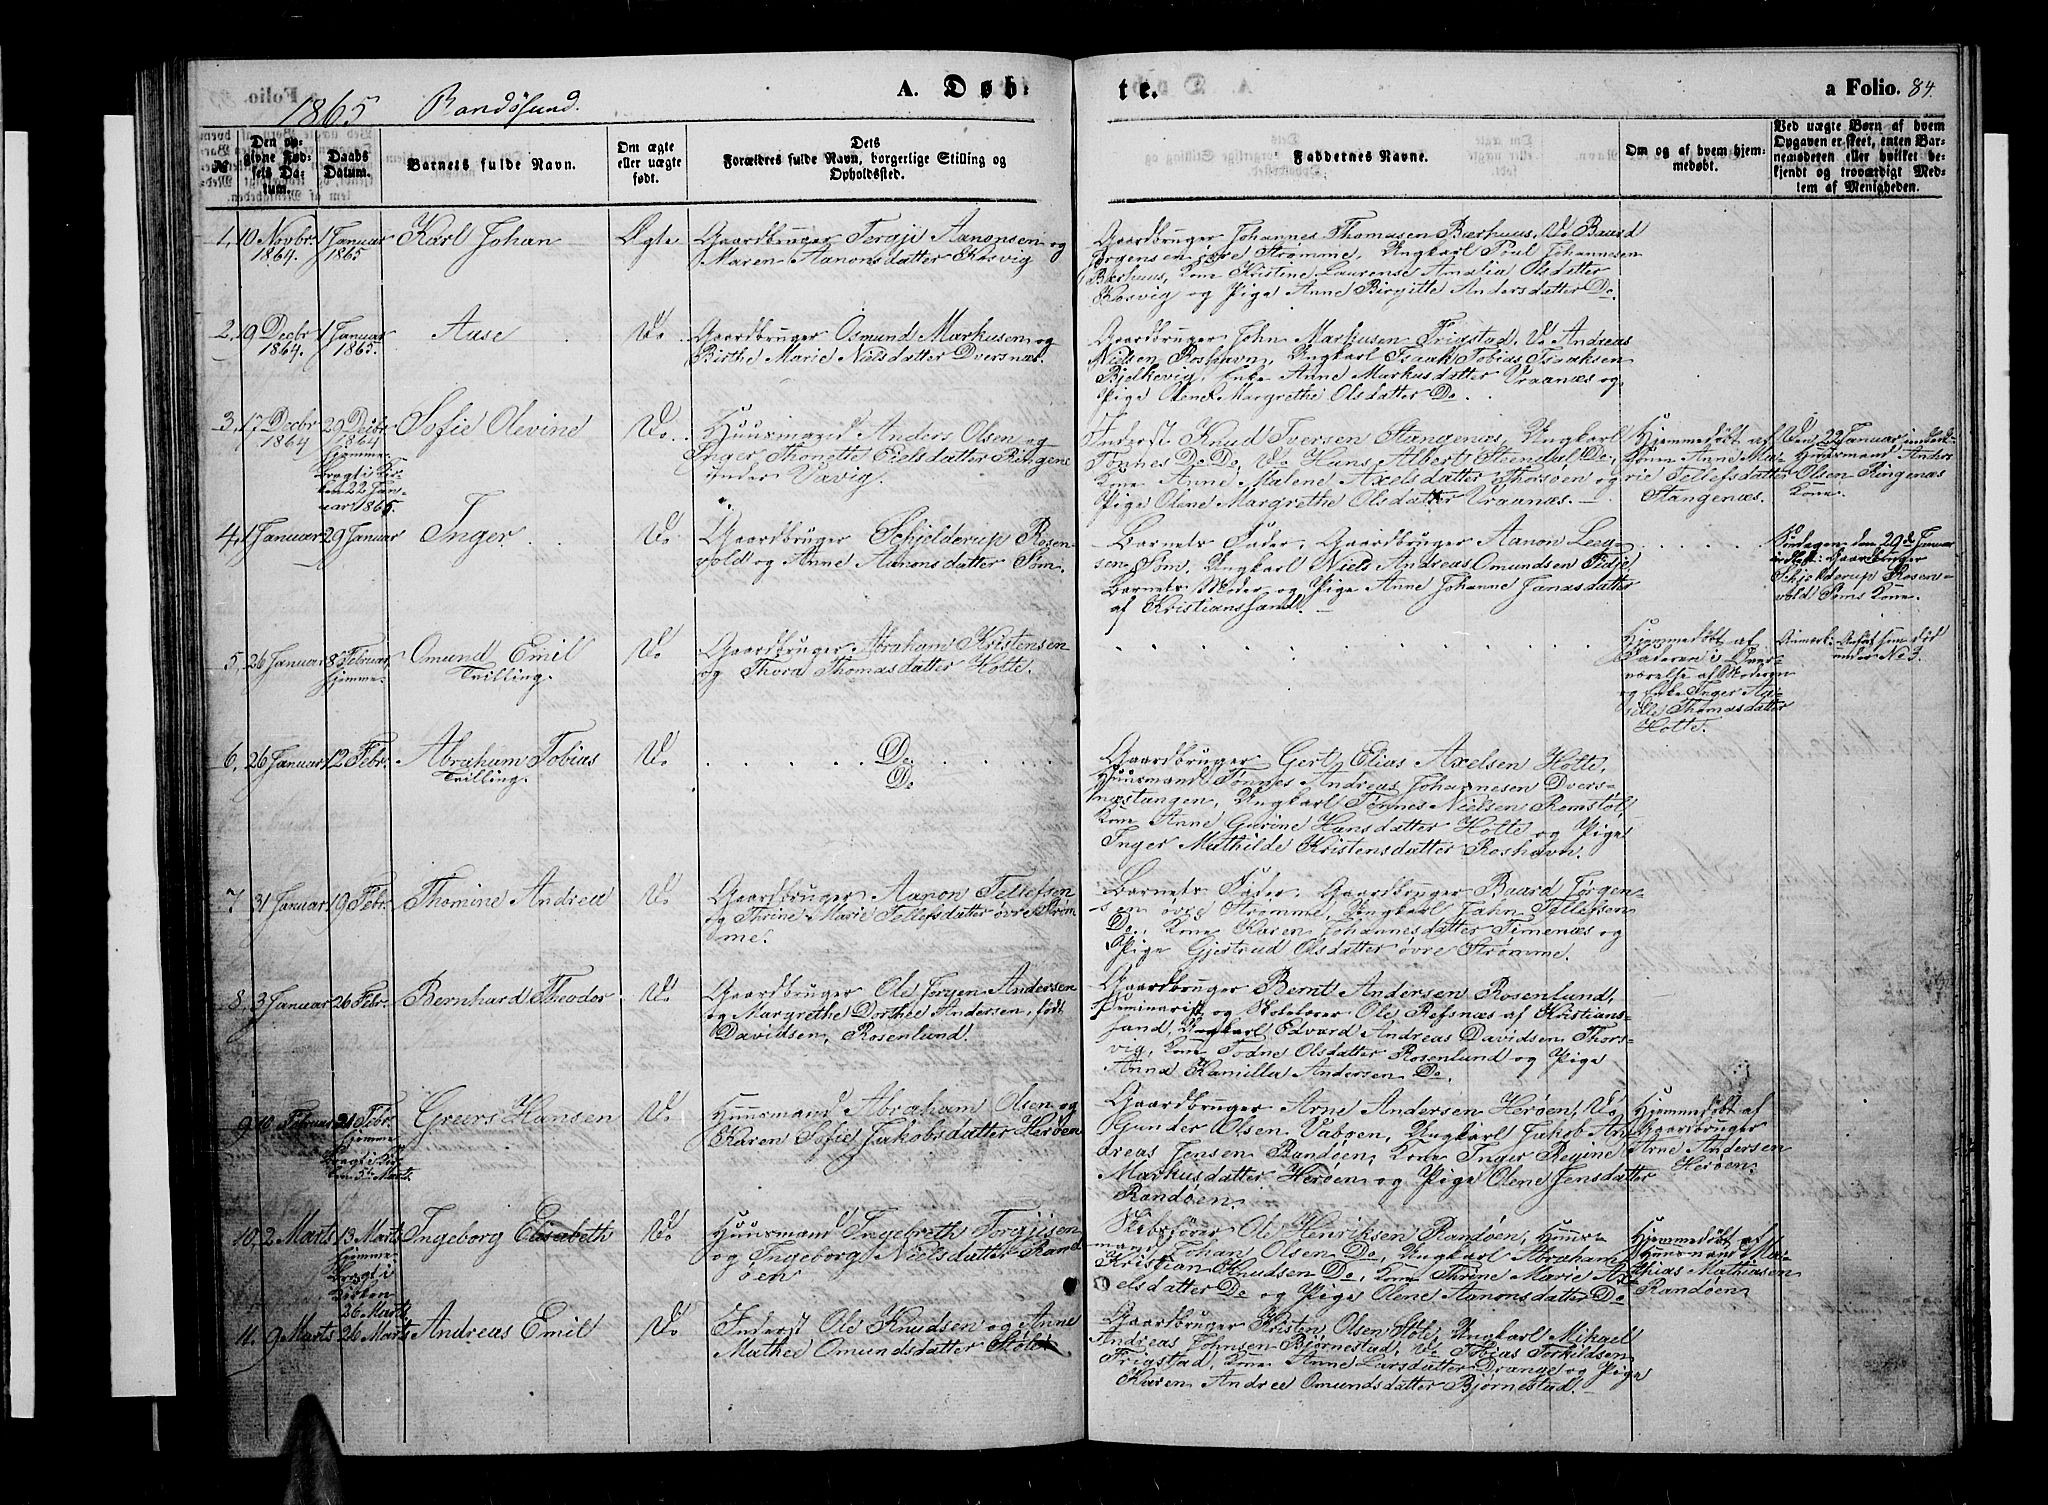 1865 Randøsund.
A. Døb=
te.
a Folio. 84.
№
Den op=
givne Fød=
sels Da=
tum.
Daabs
Datum.
Barnets fulde Navn.
Om ægte
eller uægte
født.
Dets
Forældres fulde Navn, borgerlige Stilling og
Opholdssted.
Faddernes Navne.
Om og af hvem hjem=
medøbt.
Ved uægte Børn af hvem
Opgaven er skeet, enten Bar=
nemoderen eller hvilket be=
kjendt og troværdigt Med=
lem af Menigheden.
1,
10 Novbr
1864.
1 Januar
1865
Karl Johan
Ægte
Gaardbruger Terøje Aanonsen og
Maren Aanonsdatter Kosvig
Gaardbruger Johannes Thomasen Bærhuus, Do Baard
Jørgensen øvre Strømme, Ungkarl Poul Johannesen
Bærhuus, Kone Kristine Laurense Amalia Olsdatter
Kosvig og Pige Anne Birgitte Andersdatter Do.
2,
19 Decbr
1864.
1 Januar
1865.
Aase
Do
Gaardbruger Osmund Markusen og
Birthe Marie Nielsdatter Dversnæs.
Gaardbruger John Markusen Frigstad, Do Andreas
Nielsen Roshavn, Ungkarl Isaak Tobias Isaaksen
Bjelkevig, Enke Anne Markusdatter Vraanæs og
Pige Olene Margrethe Olsdatter Do.
3,
17 Decbr
1864
29 Decbr
1864
hjemme.
Bragt i Kir=
ken 22 Jan=
uar 1865.
Sofie Olevine
Do
Huusmand Anders Olsen og
Inger Thonette Eielsdatter Ringene
under Vavig.
Inderst Knud Iversen Stangenæs, Ungkarl
Tønnes Do Do, Do Hans Albert Stendal Do,
Kone Anne Malene Axelsdatter Thorsøen og
Pige Olene Margrethe Olsdatter Vraanæs.
Hjemmedøbt af
Kone Anne Ma=
rie Tellefsdatter
Stangenæs.
Den 22 Januar,
Huusmand Anders
Olsen Ringenæs
Kone.
4,
1 Januar
29 Januar
Inger
Do
Gaardbruger Schjelderup Rosen=
vold og Anne Aanonsdatter Søm.
Barnets Fader, Gaardbruger Aanon Leeg=
sen Søm, Ungkarl Niels Andreas Omundsen Fidje,
Barnets Moder og Pige Anne Johanne Jansdatter
af Kristianssand.
Søndagen den 29de Januar
Gaardbruger
Schjelderup Rosen=
vold Søms Kone.
5,
26 Januar
8 Februar
hjemme.
Omund Emil
Tvilling.
Do
Gaardbruger Abraham Kristensen
og Thora Thomasdatter Holte.
Hjemmedøbt af
Faderen i Over=
værelse af Moderen
og Enke Inger Ag=
selle Thomasdatter
Holte.
Anmærk: Anført som død
under No 3.
6,
26 Januar
12 Febr.
Abraham Tobias
Tvilling.
Do
Do
Do
Gaardbruger Gert Elias Axelsen Holte,
Huusmand Tønnes Andreas Johannesen Dvers=
næstangen, Ungkarl Tønnes Nielsen Romstøl,
Kone Anne Gurine Hansdatter Holte og Pige
Inger Mathilde Kristensdatter Roshavn.
7
31 Januar
19 Febr.
Thomine Andrea
Do
Gaardbruger Aanon Tellefsen
og Thrine Marie Tellefsdatter øvre Strøm=
me.
Barnets Fader, Gaardbruger Baard Jørgen=
sen øvre Strømme, Ungkarl John Tellefsen
Do, Kone Karen Johannesdatter Timenæs og
Pige Gjertrud Olsdatter øvre Strømme.
8,
3 Januar
26 Febr.
Bernhard Theodor
Do
Gaardbruger Ole Jørgen Andersen
og Margrethe Dorthee Andersen, født
Davidsen, Rosenlund.
Gaardbruger Bernt Andersen Rosenlund,
Seminarist og Skolelærer Ole Refsnæs af Kristians=
sand, Ungkarl Edvard Andreas Davidsen Thors=
vig, Kone Todne Olsdatter Rosenlund og Pige
Anna Kamilla Andersen Do.
9,
10 Februar
21 Febr.
hjemme
Bragt i Kir=
ken 5te Marts.
Greers Hansen
Do
Huusmand Abraham Olsen og
Karen Sofie Jakobsdatter Herøen
Gaardbruger Arne Andersen Herøen, Do
Gunder Olsen Vaböen, Ungkarl Jakob An=
dreas Jensen Randøen, Kone Inger Regine
Markusdatter Herøen og Pige Olene Jensdatter
Randøen.
Hjemmedøbt af
Gaardbruger
Arne Andersen
Herøen.
10,
2 Marts
13 Marts
hjemme
Bragt i
Kirken
26 Marts
Ingeborg Elisabeth
Do
Huusmand Ingebreth Torgjusen
og Ingeborg Nielsdatter Rand
øen
Skibsfører Ole Henriksen Randøen, Huus=
mand Johan Olsen Do, Ungkarl Abraham
Kristian Knudsen Do, Kone Thrine Marie Ax=
elsdatter Do og Pige Olene Aanonsdatter Do
Hjemmedøbt af
Huusmand Ma=
thias Mathiasen
Randøen.
11.
9 Marts
26 Marts
Andreas Emil
Do
Inderst Ole Knudsen og Anne
Mathee Omundsdatter Støle
Gaardbruger Kristen Olsen Støle, Ungkarl Mikael
Andreas Johnsen Bjørnestad, Do Tobias Torkildsen
Frigstad, Kone Anne Larsdatter Drange og Pige
Karen Andrea Omundsdatter Bjørnestad.